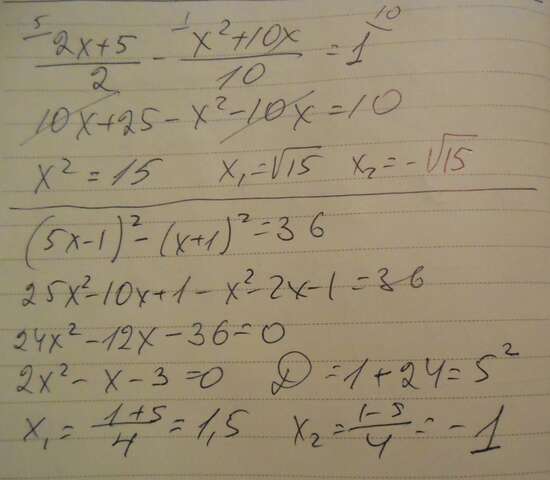 5 1 10
(2x+5)/2 - (x²+10x)/10 = 1
10x+25-x²-10x=10
x²=15 x₁=√15 x₂=-√15
(5x-1)²-(x+1)²=36
25x²-10x+1-x²-2x-1=36
24x²-12x-36=0
2x²-x-3=0 D=1+24=5²
x₁=(1+5)/4=1,5 x₂=(1-5)/4=-1